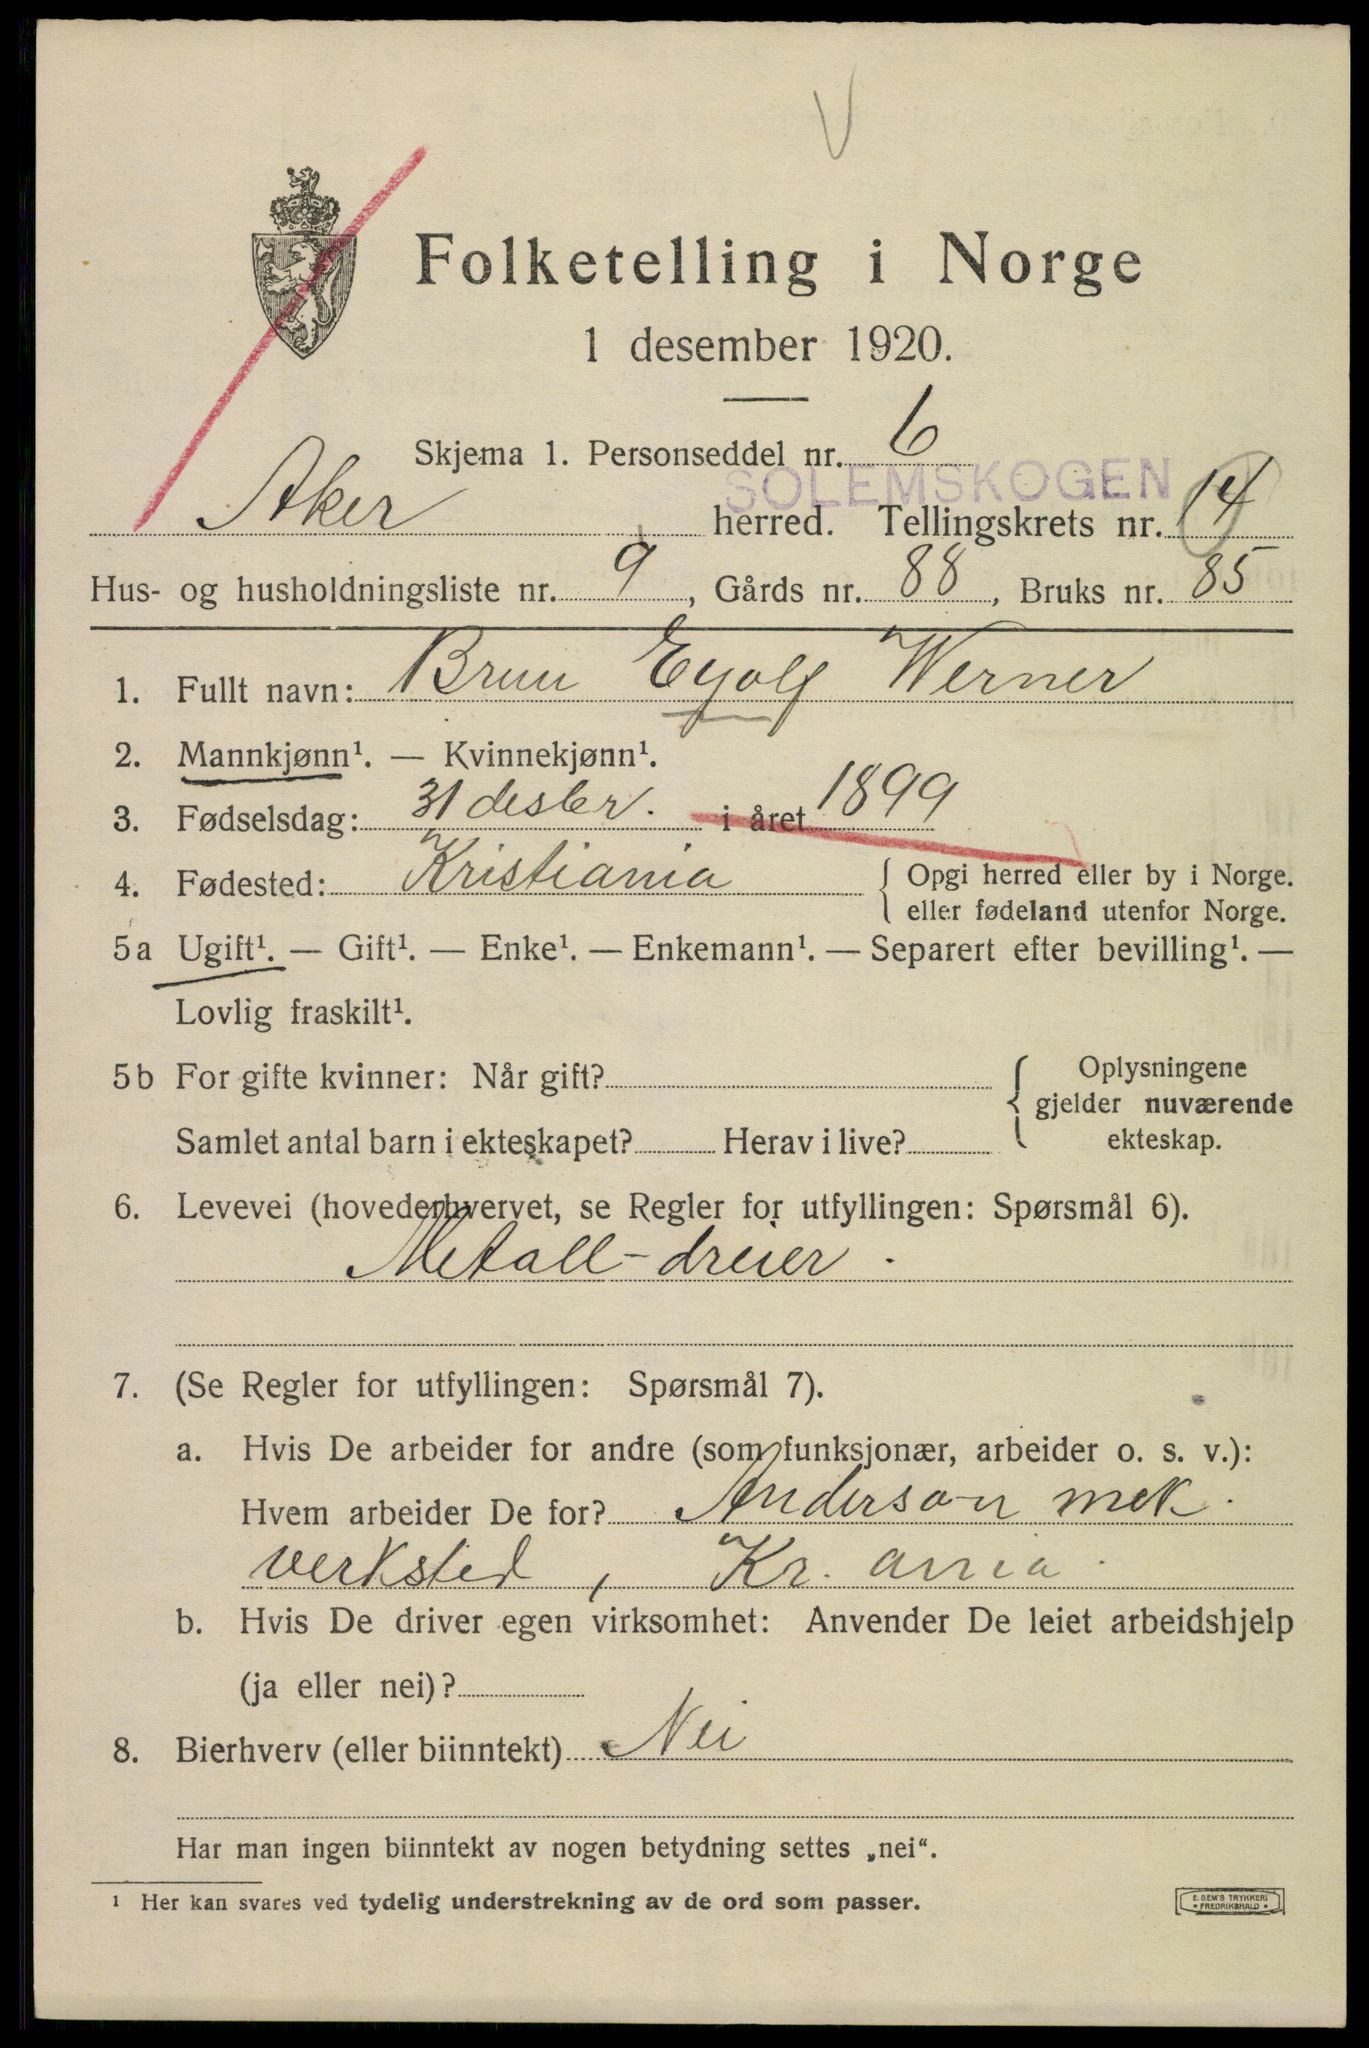 V
Folketelling i Norge
1 desember 1920.
Skjema 1. Personseddel nr. 6
SOLEMSKOGEN
Aker herred. Tellingskrets nr. 14
Hus- og husholdningsliste nr. 9, Gårds nr. 88, Bruks nr. 85
1. Fullt navn: Brun Eyolf Werner
2. Mannkjønn¹. — Kvinnekjønn¹.
3. Fødselsdag: 31 desbr. i året 1899
4. Fødested: Kristiania { Opgi herred eller by i Norge.
eller fødeland utenfor Norge.
5a Ugift¹. — Gift¹. — Enke¹. — Enkemann¹. — Separert efter bevilling¹. —
Lovlig fraskilt¹.
5b For gifte kvinner: Når gift? { Oplysningene
gjelder nuværende
Samlet antal barn i ekteskapet? Herav i live? ekteskap.
6. Levevei (hovederhvervet, se Regler for utfyllingen: Spørsmål 6).
Metall-dreier.
7. (Se Regler for utfyllingen: Spørsmål 7).
a. Hvis De arbeider for andre (som funksjonær, arbeider o. s. v.):
Hvem arbeider De for? Anderson mek.
verksted, Kr. ania.
b. Hvis De driver egen virksomhet: Anvender De leiet arbeidshjelp
(ja eller nei)?
8. Bierhverv (eller biinntekt) Nei
Har man ingen biinntekt av nogen betydning settes „nei“.
¹ Her kan svares ved tydelig understrekning av de ord som passer.
E. SEM'S TRYKKERI
• FREDRIKSHALD •